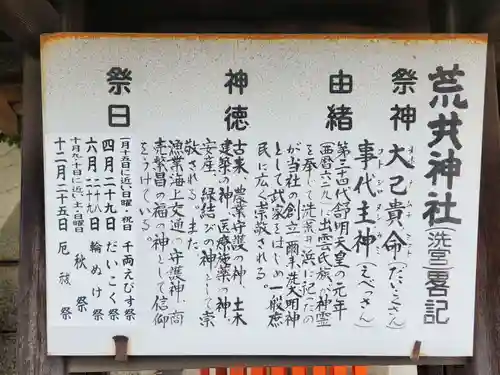 荒井神社(洗宮)畧記
祭神
大己貴命(だいこくさん)
オホナムチノミコト
事代主神(えべっさん)
コトシロヌシノカミ
由緒
第三十四代舒明天皇の元年
(西暦六二九)に出雲民族が神霊
を奉じ洗景の浜に祀ったの
が当社の創立爾来荒大明神
として武家をはじめ一般庶
民に広く崇敬される。
神徳
古来、農業守護の神、土木
建築の神、医療施薬の神、
安産、縁結びの神として崇
敬される。また
漁業海上交通の守護神、商
売繁昌の福の神として信仰
をうけている。
祭日
一月十五日に近い日曜・祝日 千両えびす祭
四月二十九日 だいこく祭
六月二十九日 輪ぬけ祭
十月九・十日に近い土・日曜日 秋祭
十二月二十五日 厄祓祭